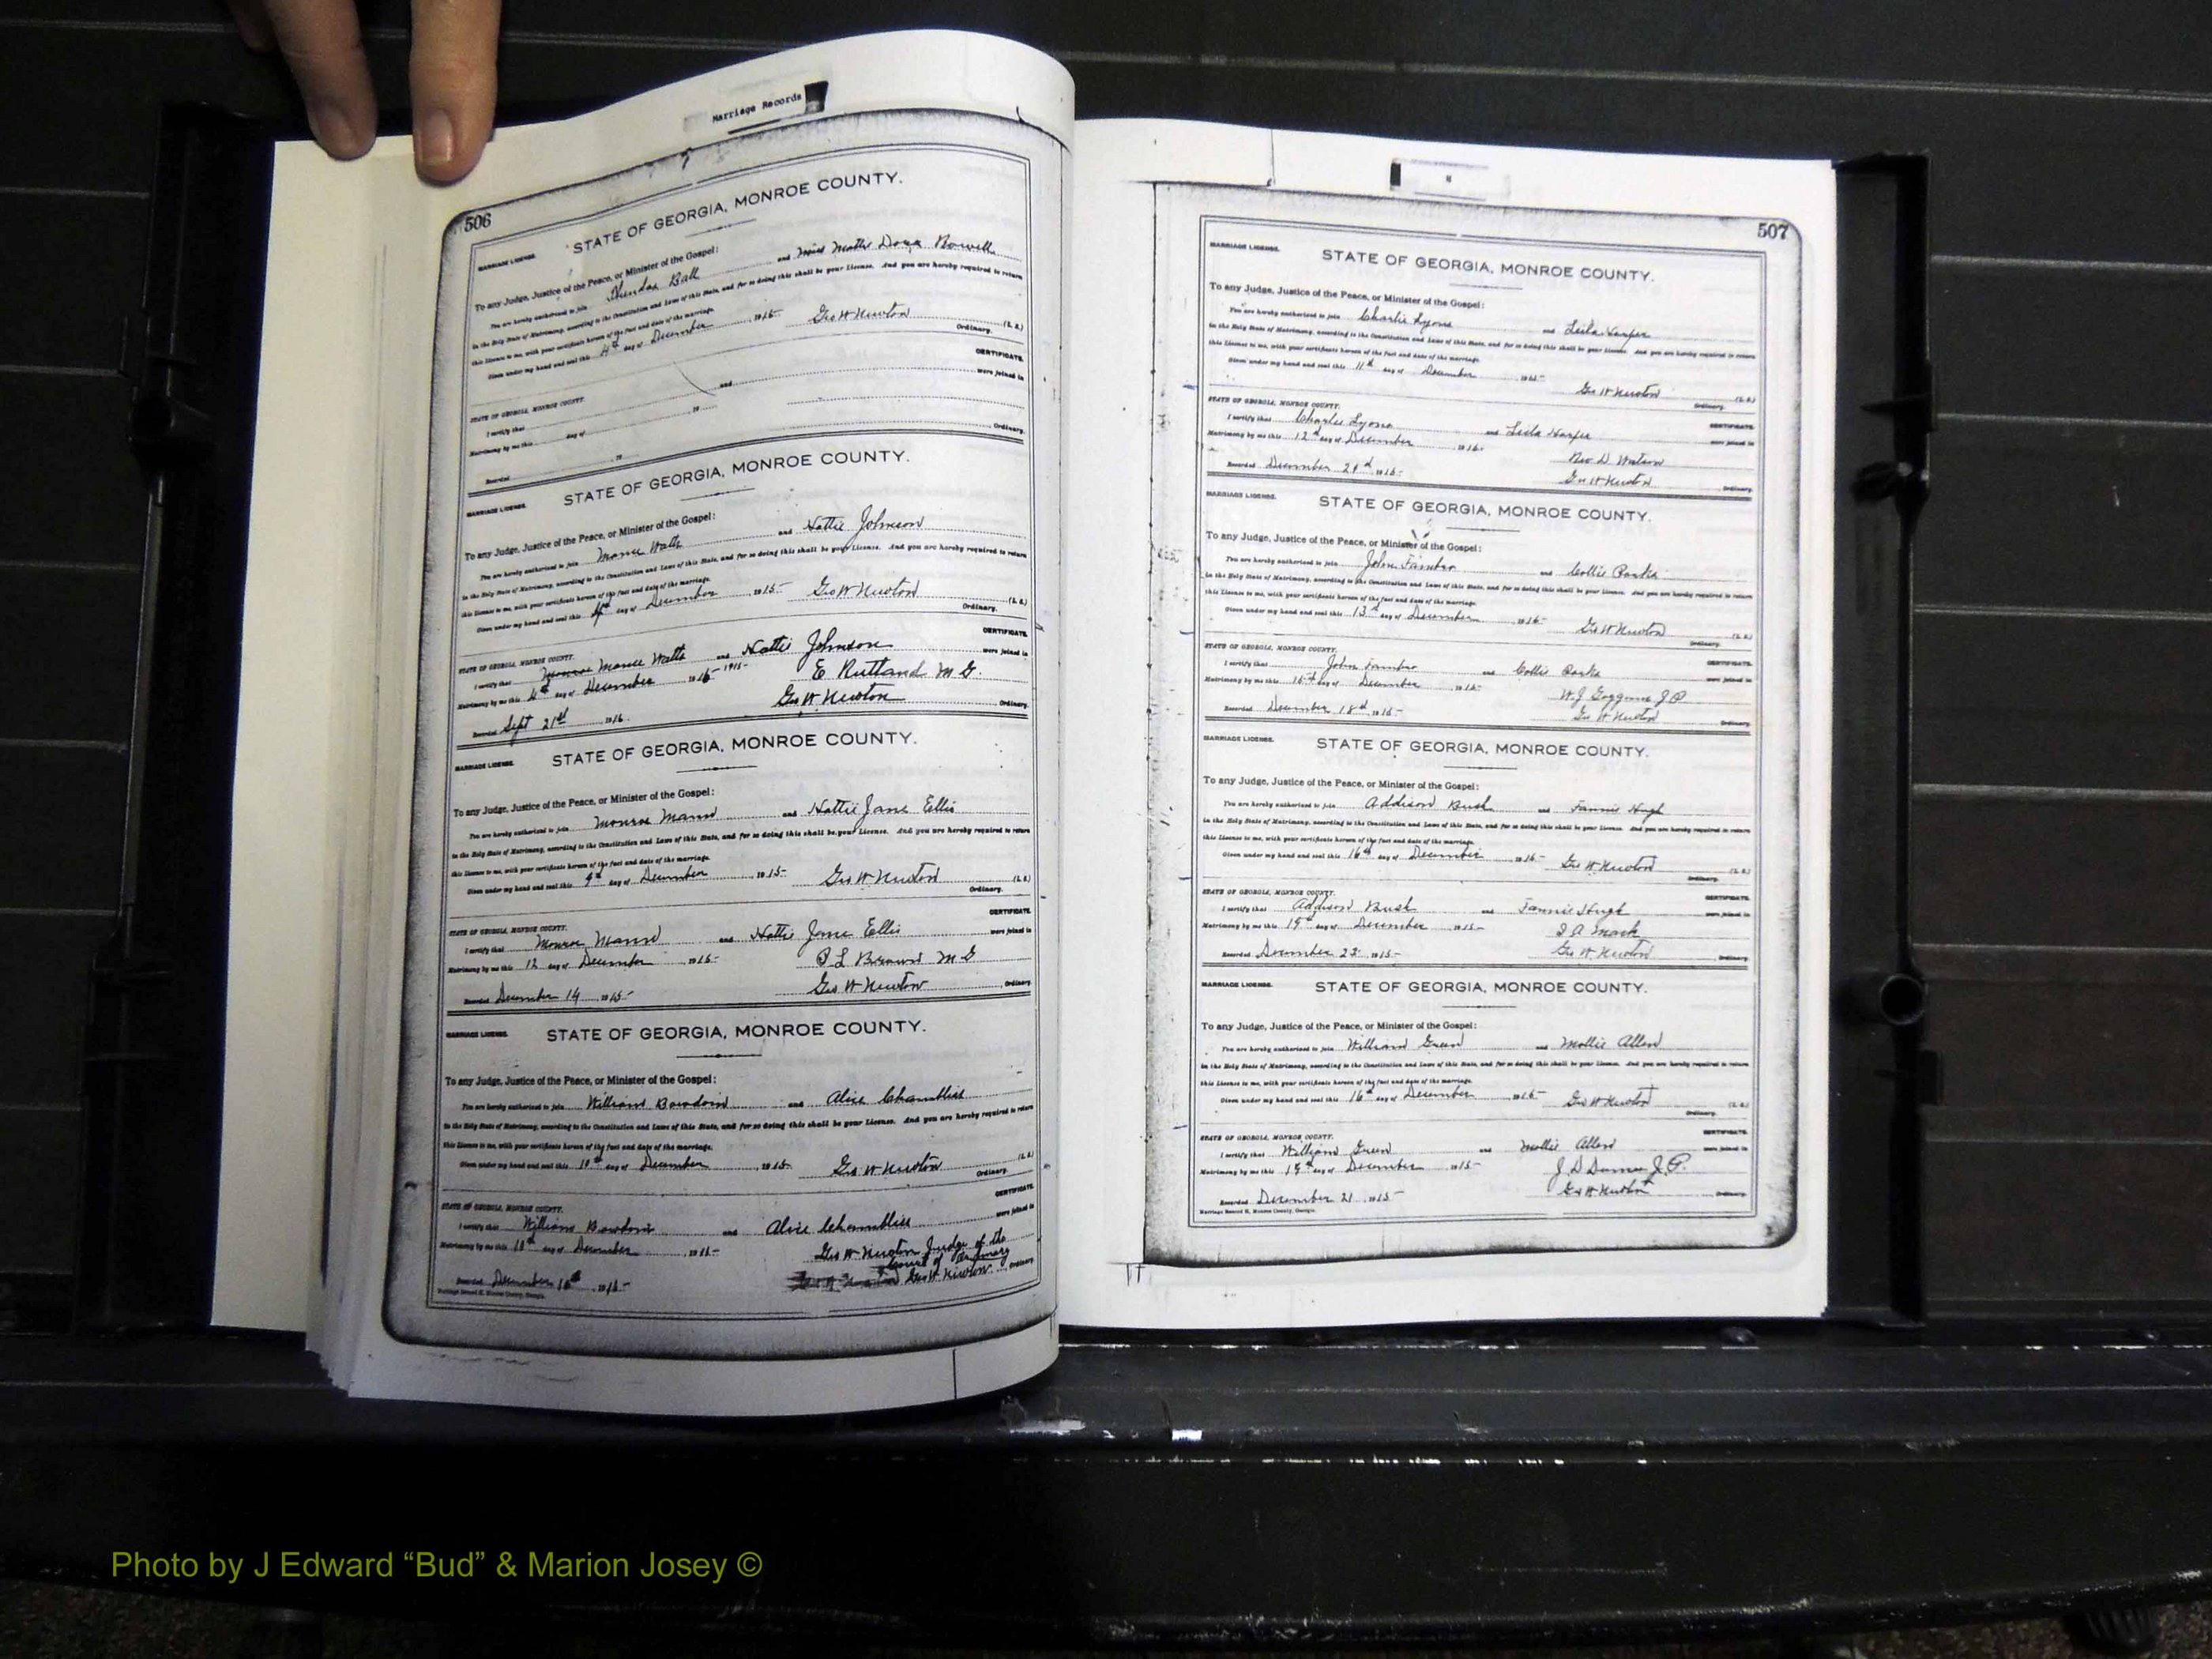 Marriage Records
506
STATE OF GEORGIA, MONROE COUNTY.
MARRIAGE LICENSE.
To any Judge, Justice of the Peace, or Minister of the Gospel:
You are hereby authorized to join Ball and Miss Mattie Dora
in the Holy State of Matrimony, according to the Constitution and Laws of this State, and for so doing this shall be your License. And you are hereby required to return
this License to me, with your certificate hereon of the fact and date of the marriage.
Given under my hand and seal this 4th day of December 1915 Geo W Newton (L. S.)
Ordinary.
CERTIFICATE.
STATE OF GEORGIA, MONROE COUNTY.
I certify that and were joined in
Matrimony by me this day of 19
Recorded 19 Ordinary.
STATE OF GEORGIA, MONROE COUNTY.
MARRIAGE LICENSE.
To any Judge, Justice of the Peace, or Minister of the Gospel:
You are hereby authorized to join and Hattie Johnson
in the Holy State of Matrimony, according to the Constitution and Laws of this State, and for so doing this shall be your License. And you are hereby required to return
this License to me, with your certificate hereon of the fact and date of the marriage.
Given under my hand and seal this 4th day of December 1915- Geo W Newton (L. S.)
Ordinary.
CERTIFICATE.
STATE OF GEORGIA, MONROE COUNTY.
I certify that and Hattie Johnson were joined in
Matrimony by me this 4th day of December 1915- E Rutland M G.
Geo W. Newton
Recorded Sept 21st 1916. Ordinary.
STATE OF GEORGIA, MONROE COUNTY.
MARRIAGE LICENSE.
To any Judge, Justice of the Peace, or Minister of the Gospel:
You are hereby authorized to join Monroe Mann and Hattie Jane Ellis
in the Holy State of Matrimony, according to the Constitution and Laws of this State, and for so doing this shall be your License. And you are hereby required to return
this License to me, with your certificate hereon of the fact and date of the marriage.
Given under my hand and seal this 9th day of December 1915- Geo W Newton (L. S.)
Ordinary.
CERTIFICATE.
STATE OF GEORGIA, MONROE COUNTY.
I certify that Monroe Mann and Hattie Jane Ellis were joined in
Matrimony by me this 12 day of December 1915- P L Brown M G
Geo W Newton
Recorded December 14 1915- Ordinary.
STATE OF GEORGIA, MONROE COUNTY.
MARRIAGE LICENSE.
To any Judge, Justice of the Peace, or Minister of the Gospel:
You are hereby authorized to join William Bowdoin and Alice Chambliss
in the Holy State of Matrimony, according to the Constitution and Laws of this State, and for so doing this shall be your License. And you are hereby required to return
this License to me, with your certificate hereon of the fact and date of the marriage.
Given under my hand and seal this day of December 1915- Geo W Newton (L. S.)
Ordinary.
CERTIFICATE.
STATE OF GEORGIA, MONROE COUNTY.
I certify that William Bowdoin and Alice Chambliss were joined in
Matrimony by me this day of December 1915- Geo W Newton Judge of the
Court of Ordinary
Recorded December 1915- Geo W Newton Ordinary.
Marriage Record H, Monroe County, Georgia.
507
STATE OF GEORGIA, MONROE COUNTY.
MARRIAGE LICENSE.
To any Judge, Justice of the Peace, or Minister of the Gospel:
You are hereby authorized to join Charlie Lyons and Leila Harper
in the Holy State of Matrimony, according to the Constitution and Laws of this State, and for so doing this shall be your License. And you are hereby required to return
this License to me, with your certificate hereon of the fact and date of the marriage.
Given under my hand and seal this 11th day of December 1915-
Geo W Newton (L. S.)
Ordinary.
STATE OF GEORGIA, MONROE COUNTY.
CERTIFICATE.
I certify that Charlie Lyons and Leila Harper were joined in
Matrimony by me this 12th day of December 1915-
Rev D. Watson
Recorded December 1915- Geo W Newton Ordinary.
MARRIAGE LICENSE.
STATE OF GEORGIA, MONROE COUNTY.
To any Judge, Justice of the Peace, or Minister of the Gospel:
You are hereby authorized to join John Fambro and Collie Parks
in the Holy State of Matrimony, according to the Constitution and Laws of this State, and for so doing this shall be your License. And you are hereby required to return
this License to me, with your certificate hereon of the fact and date of the marriage.
Given under my hand and seal this 13th day of December 1915-
Geo W Newton (L. S.)
Ordinary.
STATE OF GEORGIA, MONROE COUNTY.
CERTIFICATE.
I certify that John Fambro and Collie Parks were joined in
Matrimony by me this 15th day of December 1915-
W. J. J P
Recorded December 18th 1915- Geo W Newton Ordinary.
MARRIAGE LICENSE.
STATE OF GEORGIA, MONROE COUNTY.
To any Judge, Justice of the Peace, or Minister of the Gospel:
You are hereby authorized to join Addison Bush and Fannie Hugh
in the Holy State of Matrimony, according to the Constitution and Laws of this State, and for so doing this shall be your License. And you are hereby required to return
this License to me, with your certificate hereon of the fact and date of the marriage.
Given under my hand and seal this 16th day of December 1915- Geo W Newton (L. S.)
Ordinary.
STATE OF GEORGIA, MONROE COUNTY.
CERTIFICATE.
I certify that Addison Bush and Fannie Hugh were joined in
Matrimony by me this 19th day of December 1915-
Recorded December 23 1915- Geo W Newton Ordinary.
MARRIAGE LICENSE.
STATE OF GEORGIA, MONROE COUNTY.
To any Judge, Justice of the Peace, or Minister of the Gospel:
You are hereby authorized to join William Green and Mollie Allen
in the Holy State of Matrimony, according to the Constitution and Laws of this State, and for so doing this shall be your License. And you are hereby required to return
this License to me, with your certificate hereon of the fact and date of the marriage.
Given under my hand and seal this 16th day of December 1915- Geo W Newton (L. S.)
Ordinary.
STATE OF GEORGIA, MONROE COUNTY.
CERTIFICATE.
I certify that William Green and Mollie Allen were joined in
Matrimony by me this 19th day of December 1915- J. P.
Geo W Newton
Recorded December 21 1915- Ordinary.
Marriage Record H, Monroe County, Georgia.
Photo by J Edward “Bud” & Marion Josey ©